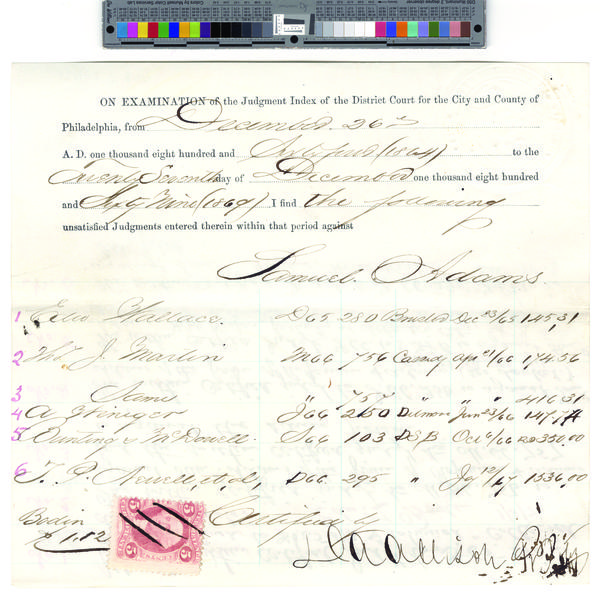 ON EXAMINATION of the Judgment Index of the District Court for the City and County of
Philadelphia, from December 26
A. D. one thousand eight hundred and Sixty four (1864) to the
Twenty Seventh day of December one thousand eight hundred
and Sixty Nine (1869) I find the following
unsatisfied Judgments entered therein within that period against
Samuel Adams
1 Wallace. D65 280 Dec 23/65 145,31
2 Thos J. Martin M66 756 Cassidy Apr 21/66 174.56
3 Same " 757 " " " 416.31
4 A J66 250 Jun 23/66 147.74
5 Bunting & McDowell S66 103 D.S.B Oct 6/66 350,00
6 T. P. Newell, et al, D66 295 " 12/67 1536,00
Certified by
$1.02
5 CENTS 5
D A Allison